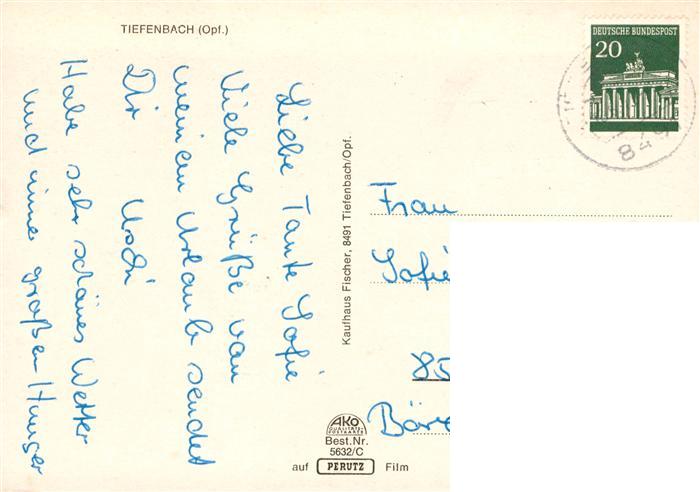 TIEFENBACH (Opf.)
Liebe Tante Sofie
Viele Grüße von
meinem Urlaub sendet
Dir Uschi
Habe sehr schönes Wetter
und immer großen Hunger
Kaufhaus Fischer, 8491 Tiefenbach/Opf.
AKO
QUALITÄTS-
POSTKARTE
Best.Nr.
5632/C
auf PERUTZ Film
DEUTSCHE BUNDESPOST
20
849
Frau
Sofie
85